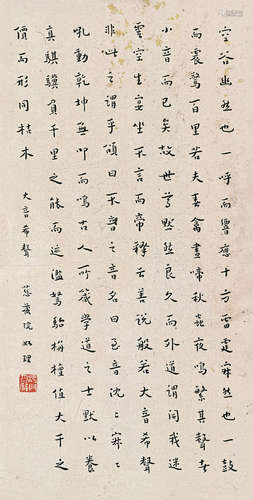 空谷幽然也一呼而響應十方雷霆寂然也一鼓
而震驚百里若夫春禽晝啼秋蟲夜鳴繁其聲者
小音而已矣故世尊默然良久而外道謂開我迷
雲空生宴坐不言而帝釋云善說般若大音希聲
非此之謂乎頌曰不音之音名曰音沈沈寂寂
吼動乾坤無叩而鳴古人所箴學道之士默以養
真騏驥負千里之能而迹濫駑駘栴檀值大千之
價而形同枯木 大音希聲 慈護院如理